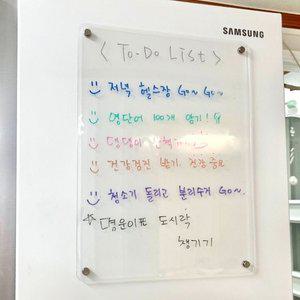 SAMSUNG
< To-Do List >
저녁 헬스장 Go~ Go~
영단어 100개 암기!
댕댕이
건강검진 받기. 건강 중요
청소기 돌리고 분리수거 Go~
도시락
챙기기